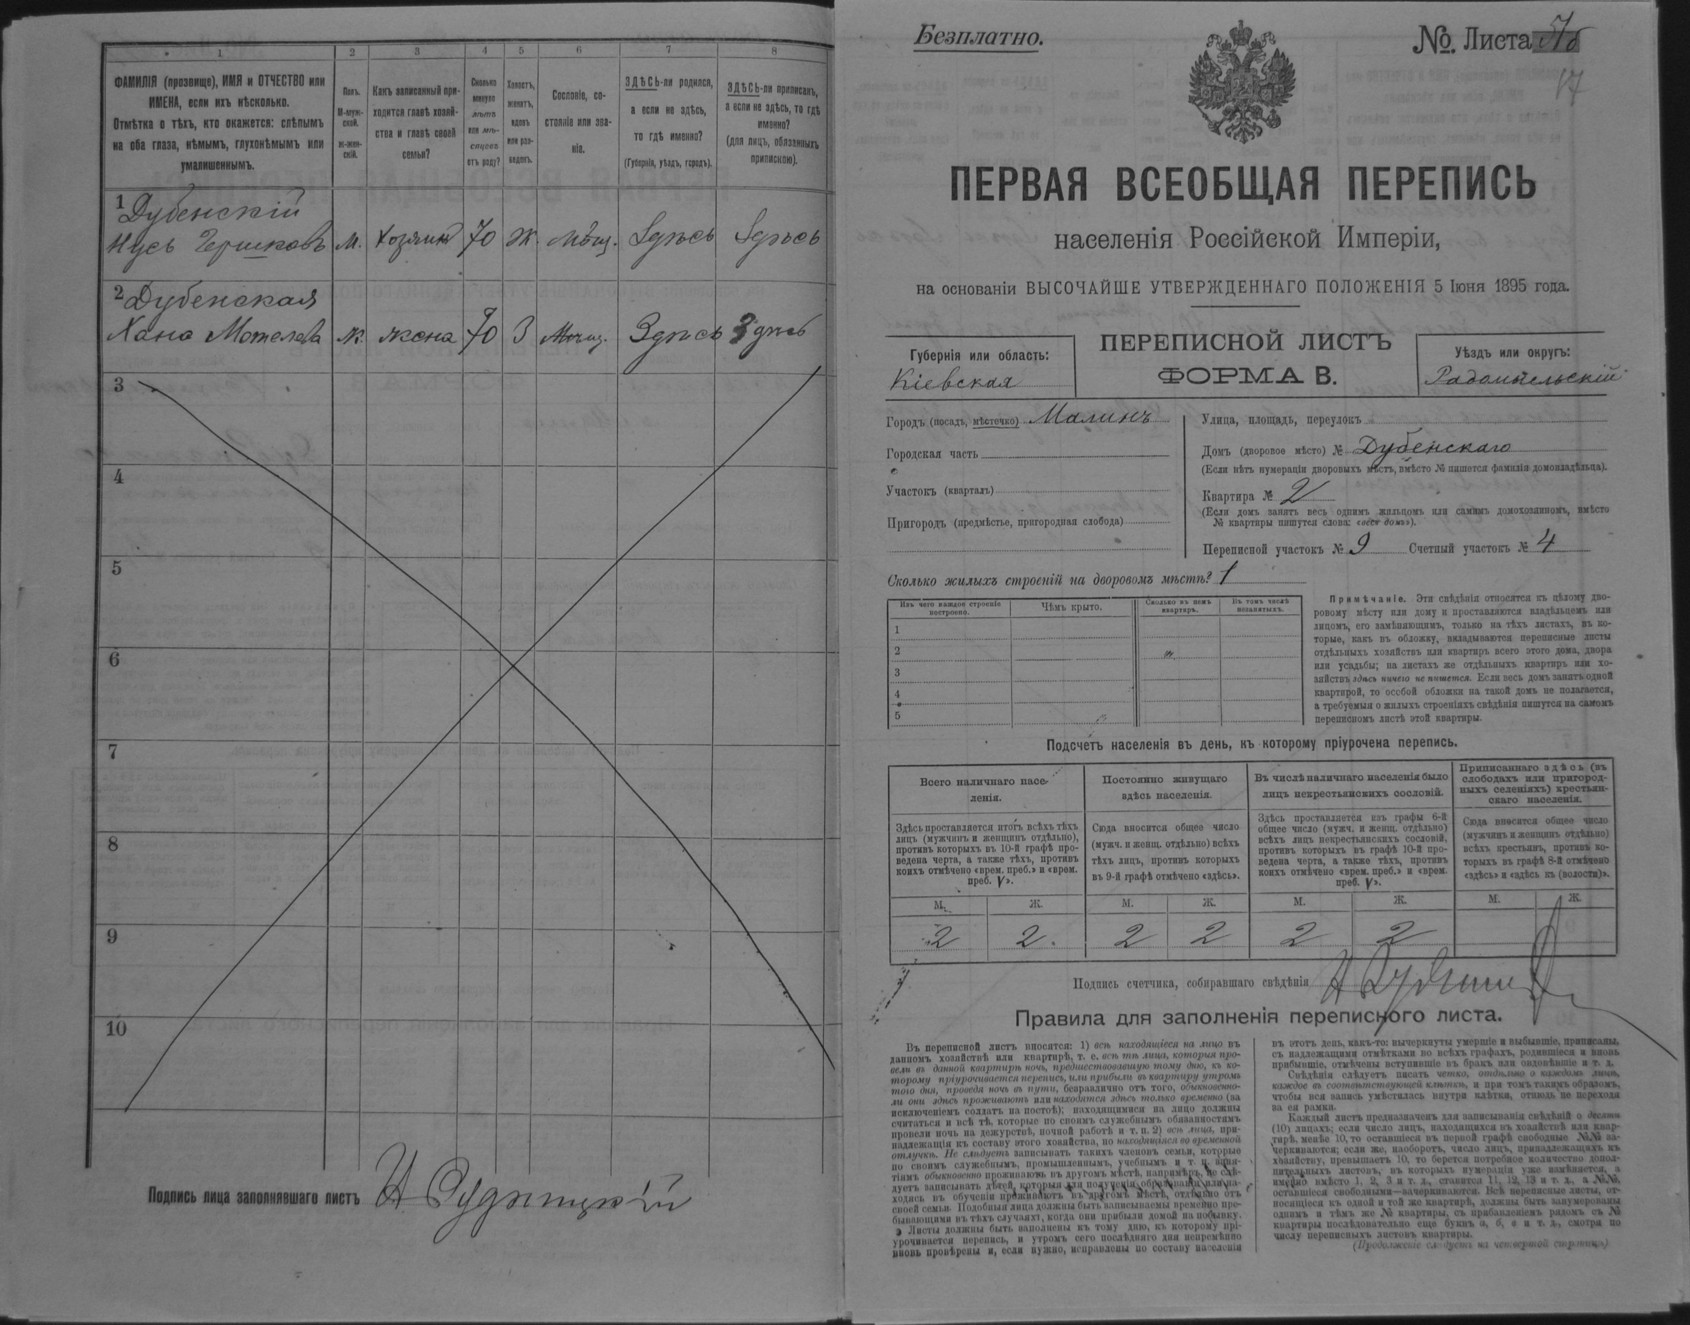 1
2
3
4
5
6
7
8
ФАМИЛІЯ (прозвище), ИМЯ и ОТЧЕСТВО или
ИМЕНА, если ихъ нѣсколько.
Отмѣтка о тѣхъ, кто окажется: слѣпымъ
на оба глаза, нѣмымъ, глухонѣмымъ или
умалишеннымъ.
Полъ.
М-муж-
ской.
Ж-жен-
скій.
Какъ записанный при-
ходится главѣ хозяй-
ства и главѣ своей
семьи?
Сколько
минуло
лѣтъ
или мѣ-
сяцевъ
отъ роду?
Холостъ,
женатъ,
вдовъ
или раз-
веденъ.
Сословіе, со-
стояніе или зва-
ніе.
ЗДѢСЬ-ли родился,
а если не здѣсь,
то гдѣ именно?
(Губернія, уѣздъ, городъ).
ЗДѢСЬ-ли приписанъ,
а если не здѣсь, то гдѣ
именно?
(для лицъ, обязанныхъ
припискою).
1 Дубенскій
Нусь Гершковъ м. хозяинъ 70 Ж. мѣщ. Здѣсь Здѣсь
2 Дубенская
Хана Мотелева ж. жена 70 З Мѣщ. Здѣсь Здѣсь
3
4
5
6
7
8
9
10
Подпись лица заполнявшаго листъ
Безплатно.
№. Листа
17
ПЕРВАЯ ВСЕОБЩАЯ ПЕРЕПИСЬ
населенія Россійской Имперіи,
на основаніи ВЫСОЧАЙШЕ УТВЕРЖДЕННАГО ПОЛОЖЕНІЯ 5 Іюня 1895 года.
Губернія или область:
Кіевская
ПЕРЕПИСНОЙ ЛИСТЪ
ФОРМА В.
Уѣздъ или округъ:
Радомысльскій
Городъ (посадъ, мѣстечко) Малинъ
Городская часть
Участокъ (кварталъ)
Пригородъ (предмѣстье, пригородная слобода)
Улица, площадь, переулокъ
Домъ (дворовое мѣсто) № Дубенскаго
(Если нѣтъ нумераціи дворовыхъ мѣстъ, вмѣсто № пишется фамилія домовладѣльца).
Квартира № 2
(Если домъ занятъ весь однимъ жильцомъ или самимъ домохозяиномъ, вмѣсто
№ квартиры пишутся слова: «весь домъ»).
Переписной участокъ № 9 Счетный участокъ № 4
Сколько жилыхъ строеній на дворовомъ мѣстѣ? 1
Изъ чего каждое строеніе
построено.
Чѣмъ крыто.
Сколько въ немъ
квартиръ.
Въ томъ числѣ
незанятыхъ.
1
2
3
4
5
Примѣчаніе. Эти свѣдѣнія относятся къ цѣлому дво-
ровому мѣсту или дому и проставляются владѣльцемъ или
лицомъ, его замѣняющимъ, только на тѣхъ листахъ, въ ко-
торые, какъ въ обложку, вкладываются переписные листы
отдѣльныхъ хозяйствъ или квартиръ всего этого дома, двора
или усадьбы; на листахъ же отдѣльныхъ квартиръ или хо-
зяйствъ здѣсь ничего не пишется. Если весь домъ занятъ одной
квартирой, то особой обложки на такой домъ не полагается,
а требуемыя о жилыхъ строеніяхъ свѣдѣнія пишутся на самомъ
переписномъ листѣ этой квартиры.
Подсчетъ населенія въ день, къ которому пріурочена перепись.
Всего наличнаго насе-
ленія.
Постоянно живущаго
здѣсь населенія.
Въ числѣ наличнаго населенія было
лицъ некрестьянскихъ сословій.
Приписаннаго здѣсь (въ
слободахъ или пригород-
ныхъ селеніяхъ) крестьян-
скаго населенія.
Здѣсь проставляется итогъ всѣхъ тѣхъ
лицъ (мужчинъ и женщинъ отдѣльно),
противъ которыхъ въ 10-й графѣ про-
ведена черта, а также тѣхъ, противъ
коихъ отмѣчено «врем. преб.» и «врем.
преб. V».
Сюда вносится общее число
(мужч. и женщ. отдѣльно) всѣхъ
тѣхъ лицъ, противъ которыхъ
въ 9-й графѣ отмѣчено «здѣсь».
Здѣсь проставляется изъ графы 6-й
общее число (мужч. и женщ. отдѣльно)
всѣхъ лицъ некрестьянскихъ сословій,
противъ которыхъ въ графѣ 10-й про-
ведена черта, а также тѣхъ, противъ
коихъ отмѣчено «врем. преб.» и «врем.
преб. V».
Сюда вносится общее число
(мужчинъ и женщинъ отдѣльно)
всѣхъ крестьянъ, противъ ко-
торыхъ въ графѣ 8-й отмѣчено
«здѣсь» и «здѣсь къ (волости)».
М. Ж. М. Ж. М. Ж. М. Ж.
2 2. 2 2 2 2
Подпись счетчика, собиравшаго свѣдѣнія
Правила для заполненія переписного листа.
Въ переписной листъ вносятся: 1) всѣ находящіеся на лицо въ
данномъ хозяйствѣ или квартирѣ, т. е. всѣ тѣ лица, которыя про-
вели въ данной квартирѣ ночь, предшествовавшую тому дню, къ ко-
торому пріурочивается перепись, или прибыли въ квартиру утромъ
того дня, проведя ночь въ пути, безразлично отъ того, обыкновенно-
ли они здѣсь проживаютъ или находятся здѣсь только временно (за
исключеніемъ солдатъ на постоѣ); находящимися на лицо должны
считаться и всѣ тѣ, которые по своимъ служебнымъ обязанностямъ
провели ночь на дежурствѣ, ночной работѣ и т. п. 2) всѣ лица, при-
надлежащія къ составу этого хозяйства, но находящіяся во временной
отлучкѣ. Не слѣдуетъ записывать такихъ членовъ семьи, которые
по своимъ служебнымъ, промышленнымъ, учебнымъ и т. п. заня-
тіямъ обыкновенно проживаютъ въ другомъ мѣстѣ, напримѣръ, не слѣ-
дуетъ записывать дѣтей, которыя для полученія образованія или на-
ходясь въ обученіи проживаютъ въ другомъ мѣстѣ, отдѣльно отъ
своей семьи. Подобныя лица должны быть записываемы временно пре-
бывающими въ тѣхъ случаяхъ, когда они прибыли домой на побывку.
Листы должны быть заполнены къ тому дню, къ которому прі-
урочивается перепись, и утромъ сего послѣдняго дня непремѣнно
вновь провѣрены и, если нужно, исправлены по составу населенія
въ этотъ день, какъ-то: вычеркнуты умершіе и выбывшіе, приписаны,
съ надлежащими отмѣтками во всѣхъ графахъ, родившіеся и вновь
прибывшіе, отмѣчены вступившіе въ бракъ или овдовѣвшіе и т. д.
Свѣдѣнія слѣдуетъ писать четко, отдѣльно о каждомъ лицѣ,
каждое въ соотвѣтствующей клѣткѣ, и при томъ такимъ образомъ,
чтобы вся запись умѣстилась внутри клѣтки, отнюдь не переходя
за ея рамки.
Каждый листъ предназначенъ для записыванія свѣдѣній о десяти
(10) лицахъ; если число лицъ, находящихся въ хозяйствѣ или квар-
тирѣ, менѣе 10, то оставшіеся въ первой графѣ свободные №№ за-
черкиваются; если же, наоборотъ, число лицъ, принадлежащихъ къ
хозяйству, превышаетъ 10, то берется потребное количество допол-
нительныхъ листовъ, въ которыхъ нумерація уже измѣняется, а
именно вмѣсто 1, 2, 3 и т. д., ставится 11, 12, 13 и т. д., а №№,
оставшіеся свободными—зачеркиваются. Всѣ переписные листы, от-
носящіеся къ одной и той же квартирѣ, должны быть занумерованы
однимъ и тѣмъ же № квартиры, съ прибавленіемъ рядомъ съ №
квартиры послѣдовательно еще буквъ а, б, в и т. д., смотря по
числу переписныхъ листовъ квартиры.
(Продолженіе слѣдуетъ на четвертой страницѣ)